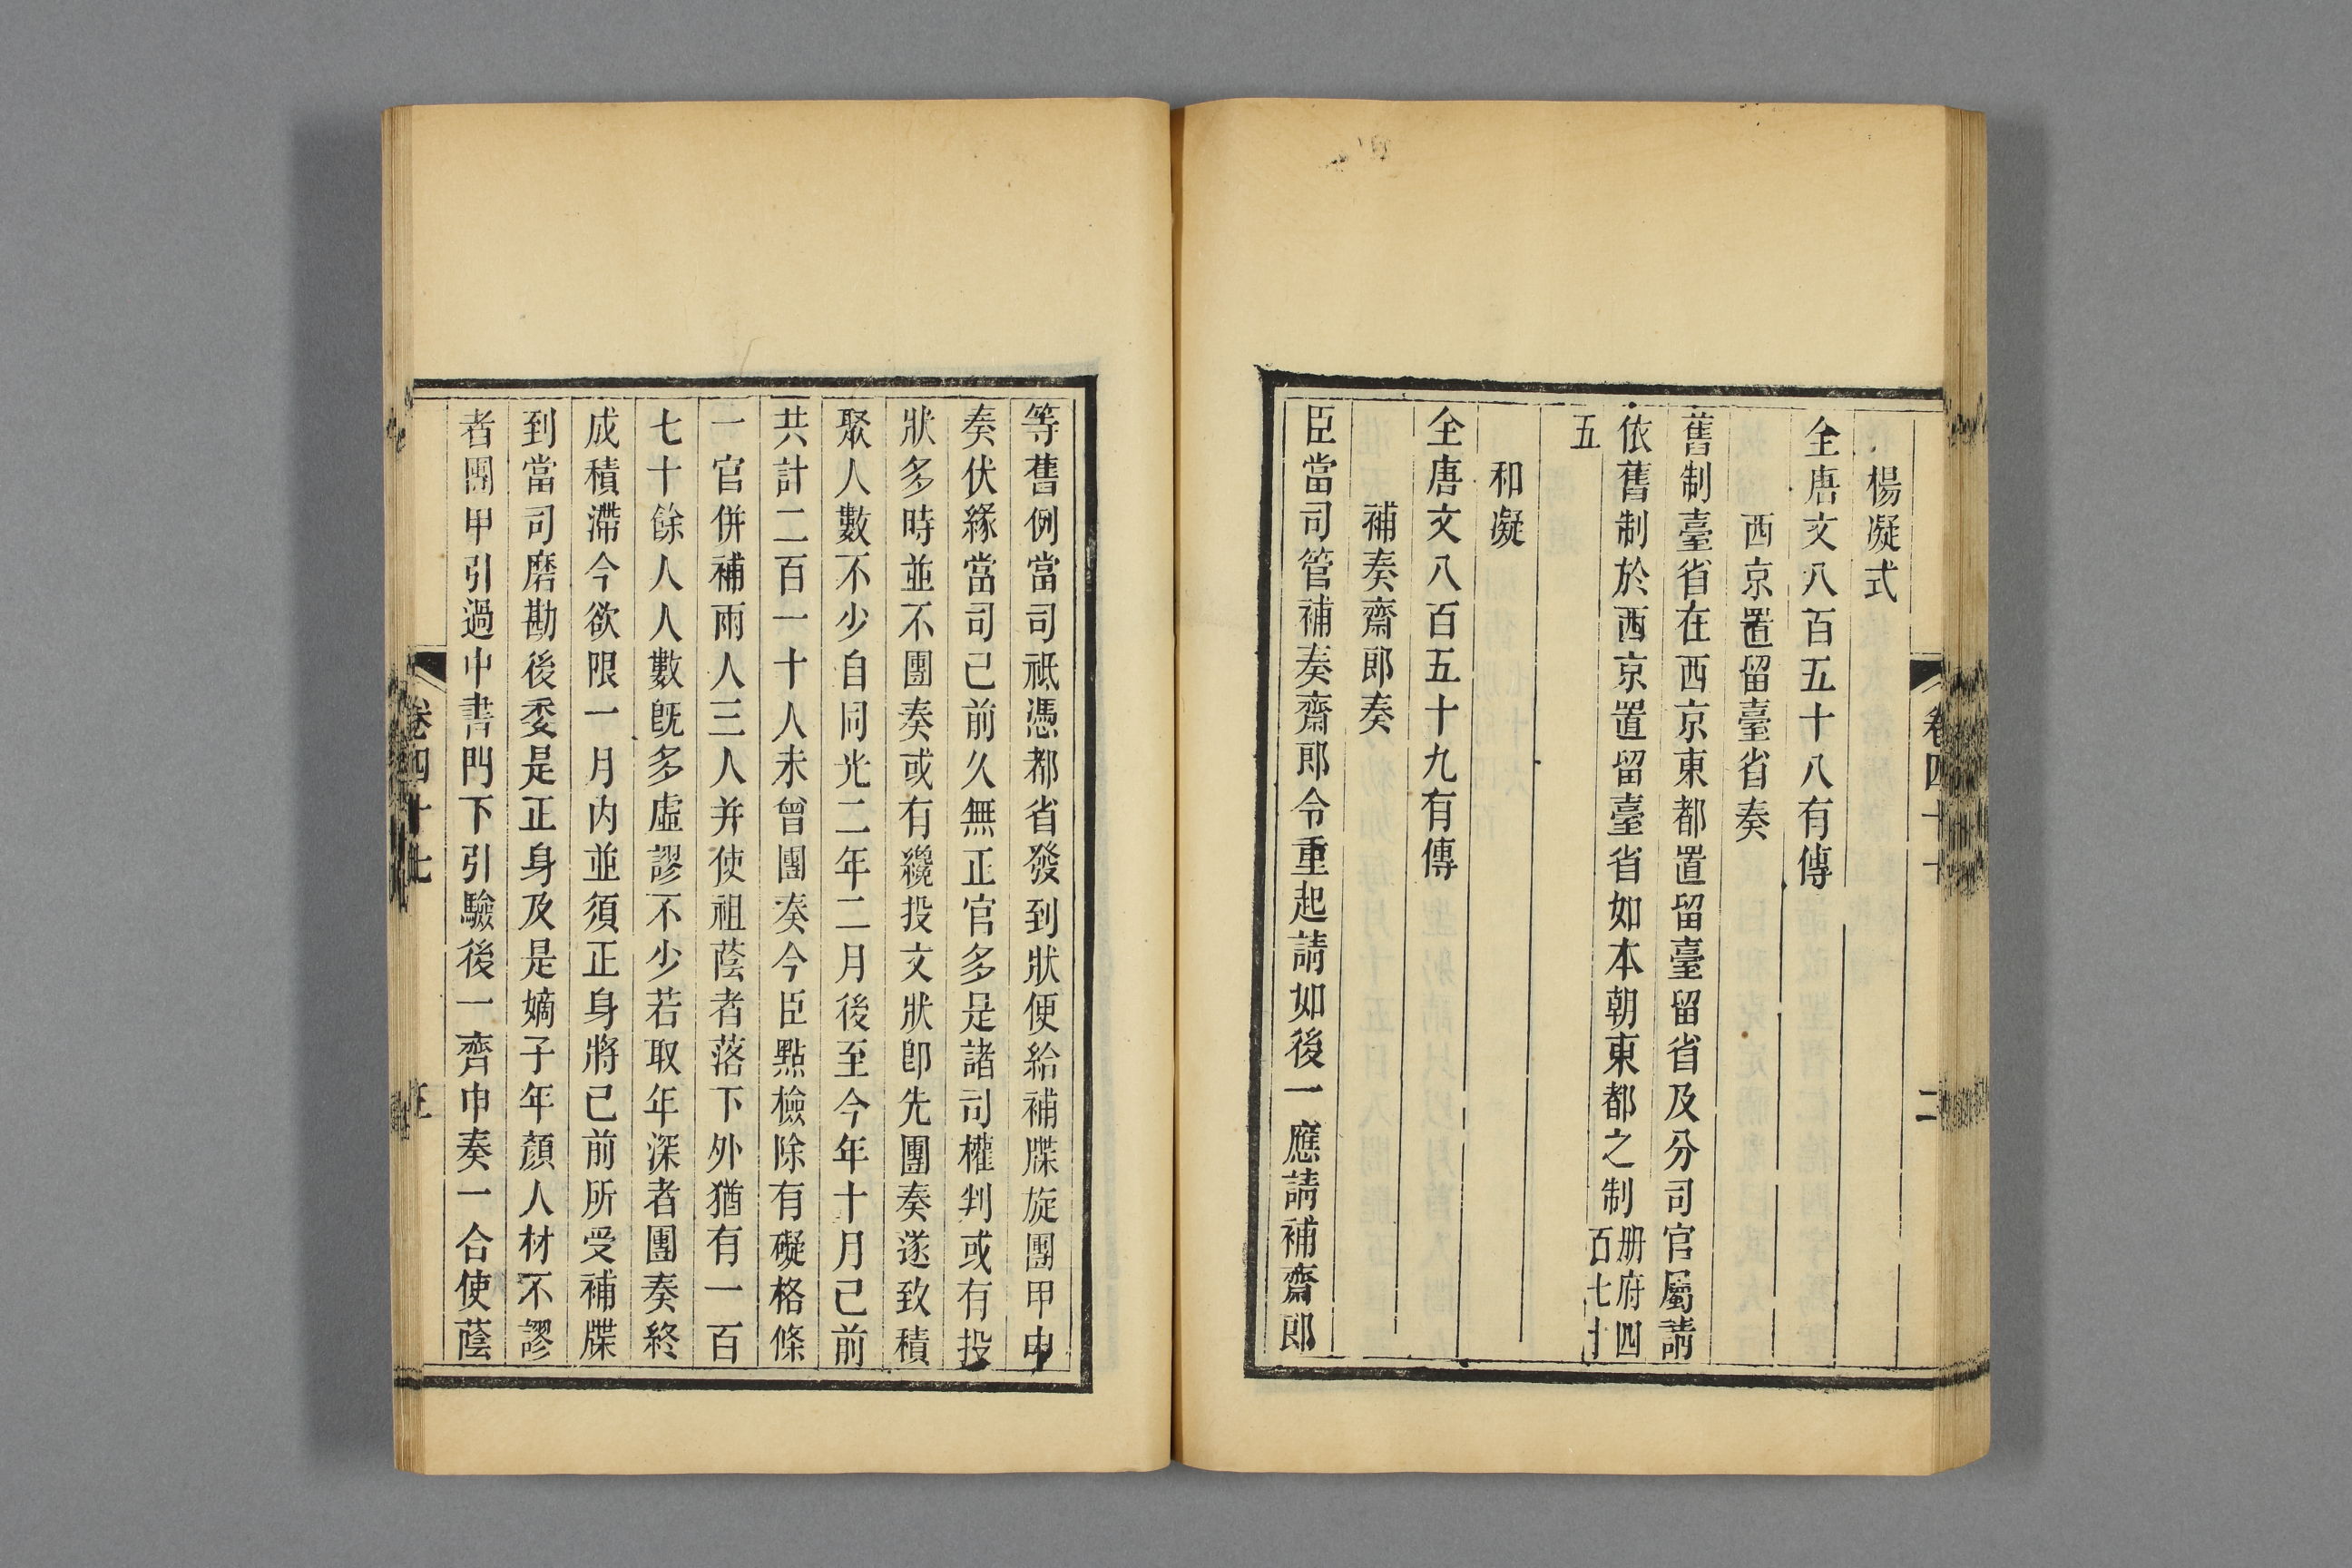 楊凝式
全唐文八百五十八有傳
西京置留臺省奏
舊制臺省在西京東都置留臺留省及分司官屬請
依舊制於西京置留臺省如本朝東都之制册府四百七十
五
和凝
全唐文八百五十九有傳
補奏齋郎奏
臣當司管補奏齋郎令重起請如後一應請補齋郎
等舊例當司祇憑都省發到狀便給補牒旋團甲申
奏伏緣當司己前久無正官多是諸司權判或有投
狀多時並不團奏或有纔投文狀卽先團奏遂致積
聚人數不少自同光二年二月後至今年十月己前
共計二百一十人未曾團奏今臣點檢除有礙格條
一官併補兩人三人并使祖蔭者落下外猶有一百
七十餘人人數旣多虛謬不少若取年深者團奏終
成積滯今欲限一月内並須正身將己前所受補牒
到當司磨勘後委是正身及是嫡子年顏人材不謬
者團甲引過中書門下引驗後一齊申奏一合使蔭
卷四十七